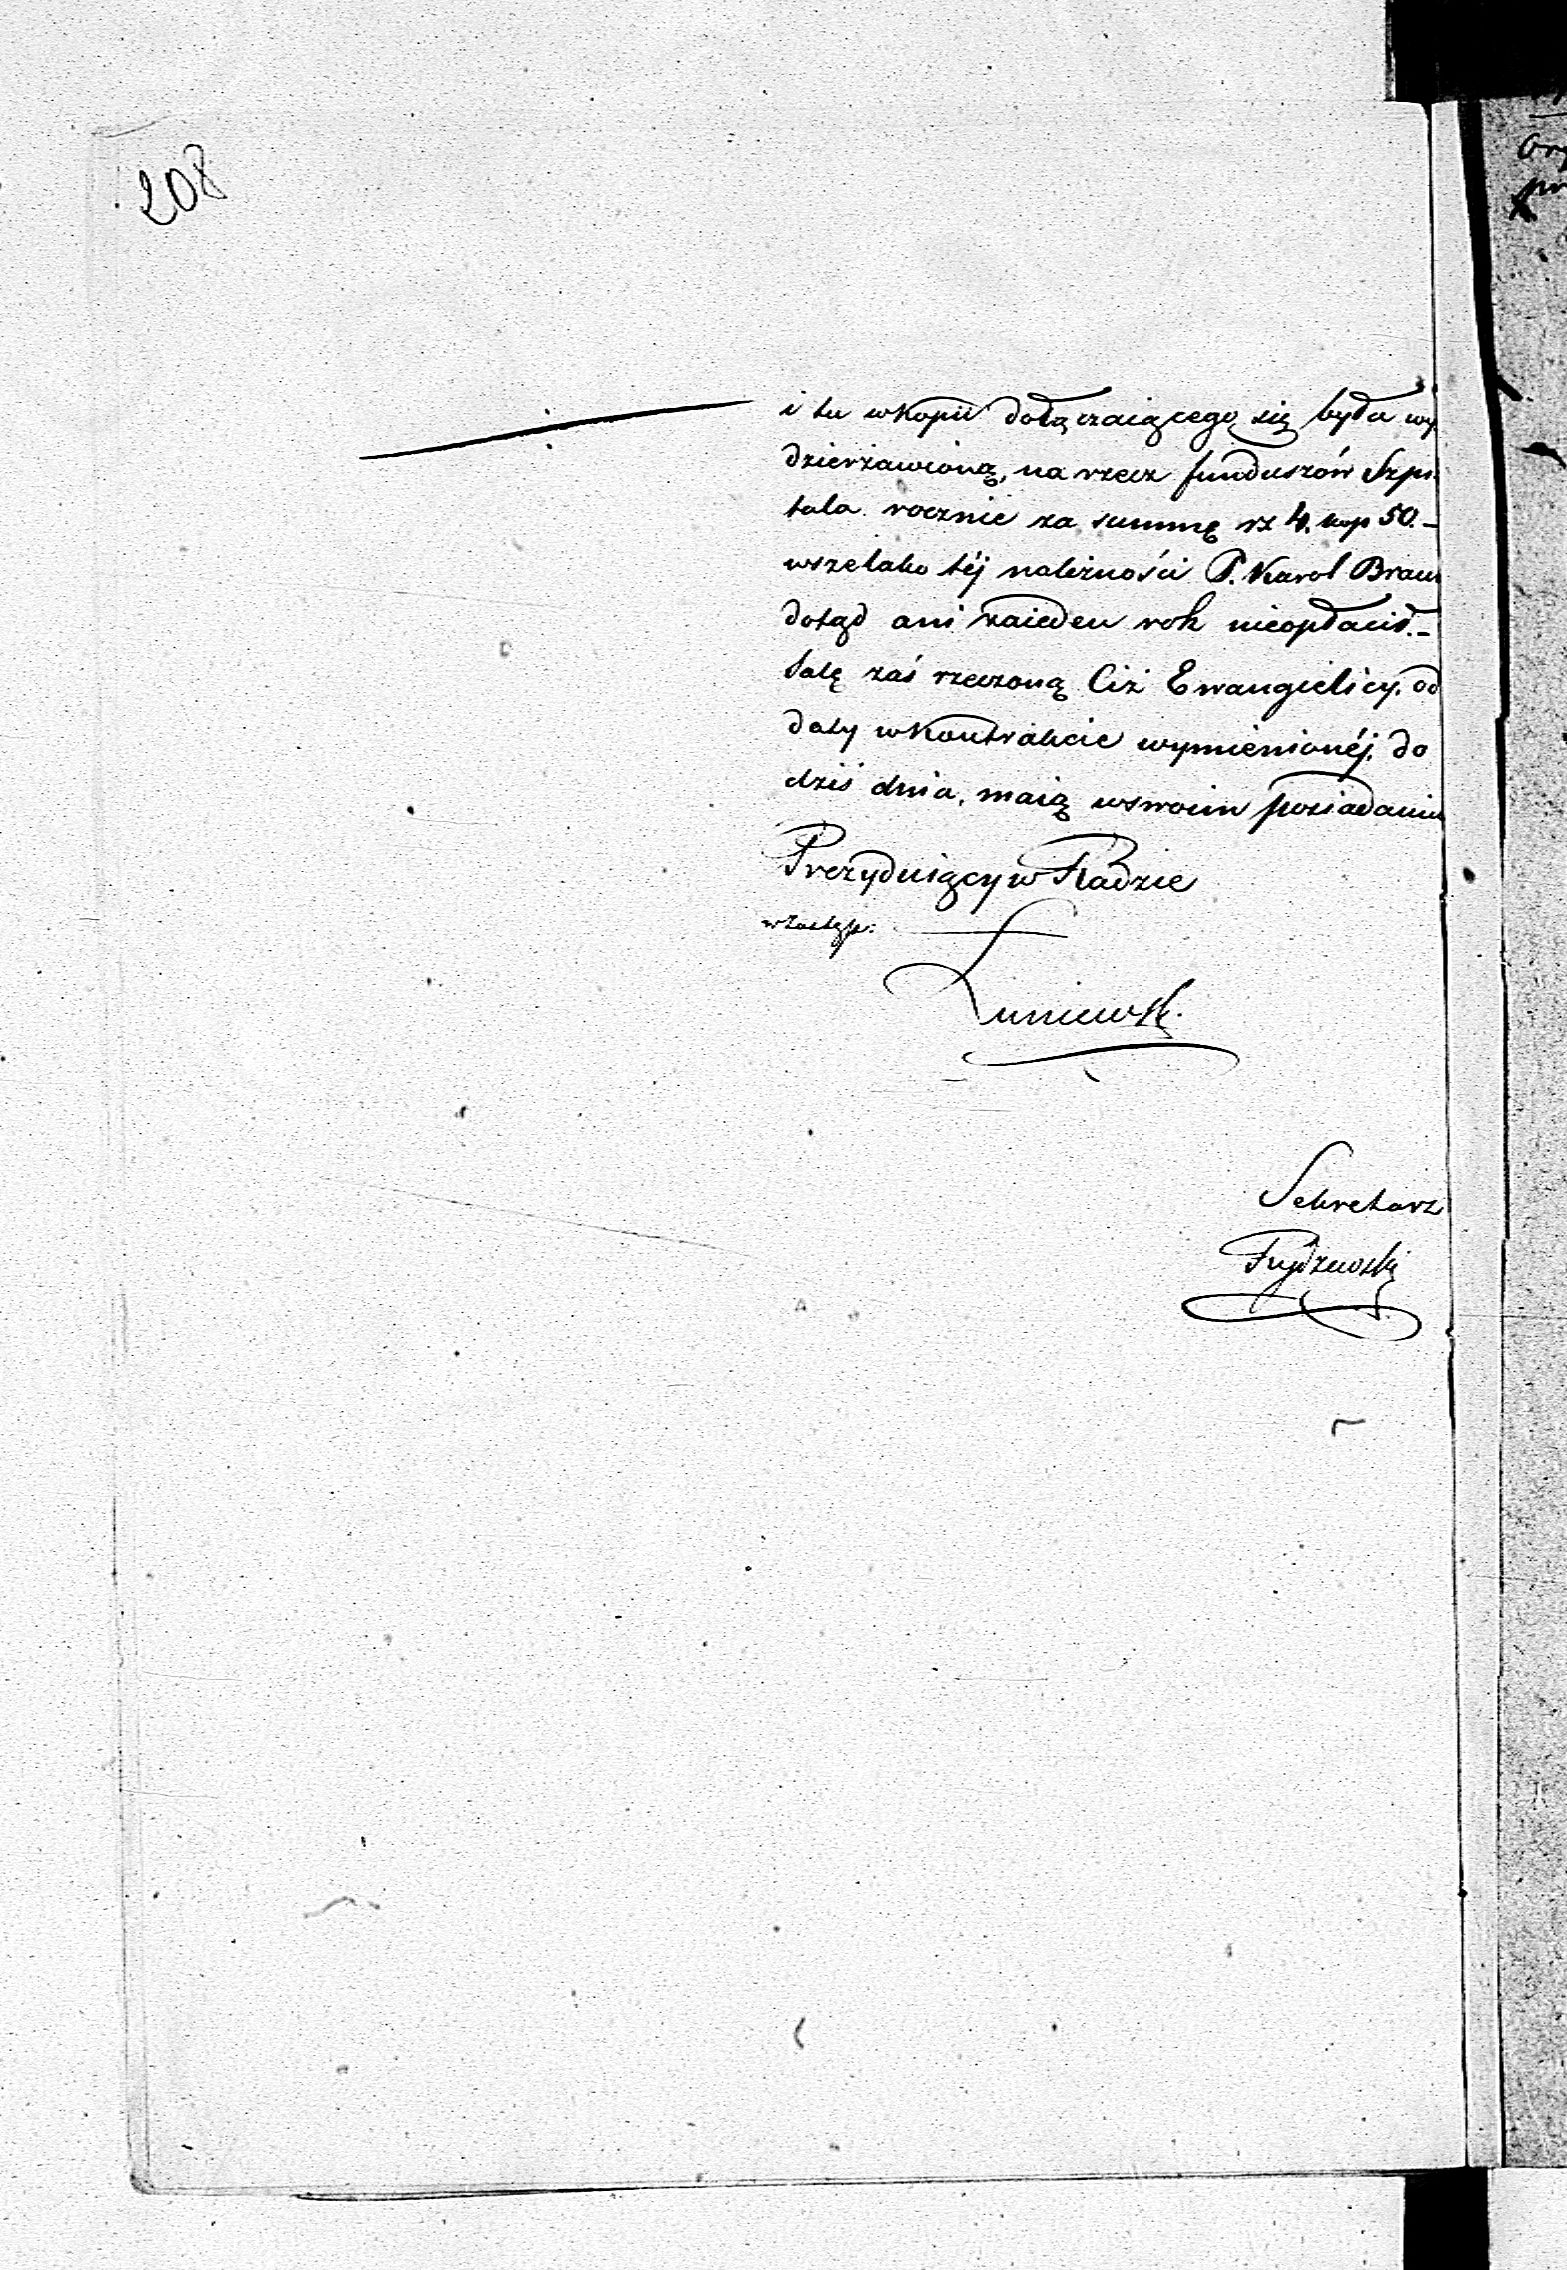 208
i tu w kopii dołączaiącego się była wy
dzierżawioną, na rzecz funduszów Szpi
tala rocznie za summę rs 4. kop 50.-
wszelako téj należności P. Karol Braun
dotąd ani zaieden rok nieopłacił.-
Salę zaś rzeczoną Ciż Ewangielicy, od
daty w kontrakcie wymienionéj, do
dziś dnia, maią w swoim posiadaniu
Prezyduiący w Radzie
w Zastęp:
Łuniewsk.
Sekretarz